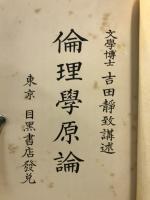 文學博士 吉田靜致講述
倫理學原論
東京 目黑書店發兌